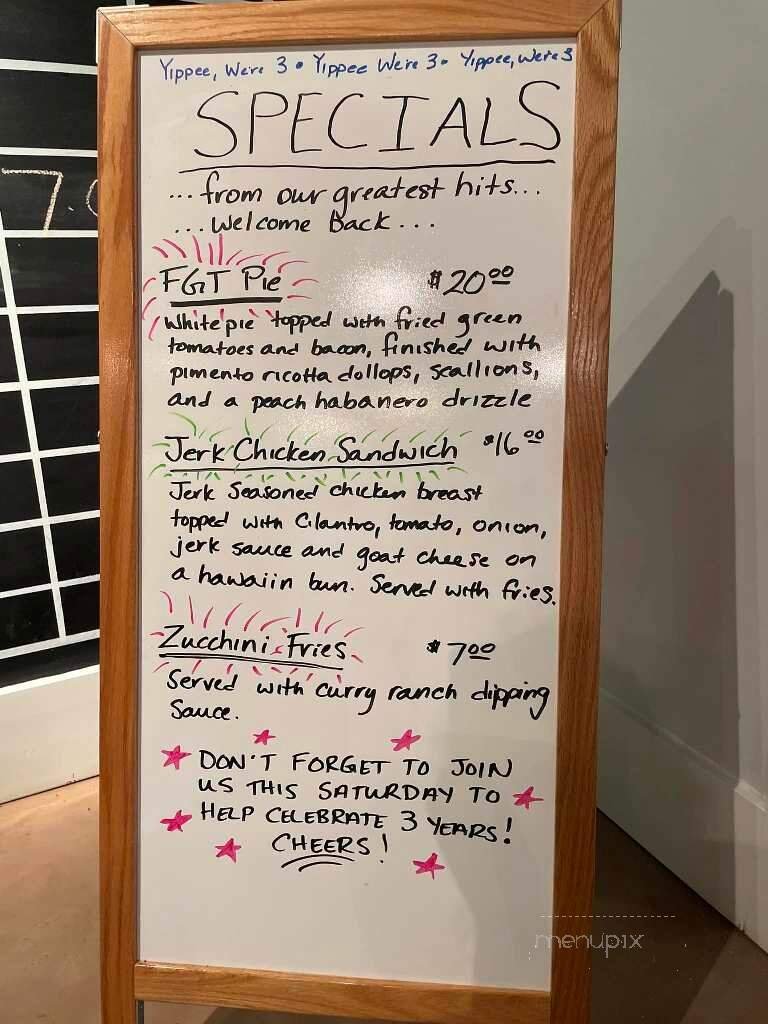 Yippee, We're 3 • Yippee We're 3 • Yippee, We're 3
SPECIALS
...from our greatest hits...
...Welcome Back...
FGT Pie $20.00
White pie topped with fried green
tomatoes and bacon, finished with
pimento ricotta dollops, scallions,
and a peach habanero drizzle
Jerk Chicken Sandwich $16.00
Jerk Seasoned chicken breast
topped with Cilantro, tomato, onion,
jerk sauce and goat cheese on
a hawaiin bun. Served with fries.
Zucchini Fries $7.00
Served with curry ranch dipping
Sauce.
DON'T FORGET TO JOIN
US THIS SATURDAY TO
HELP CELEBRATE 3 YEARS!
CHEERS!
7.0
menupix